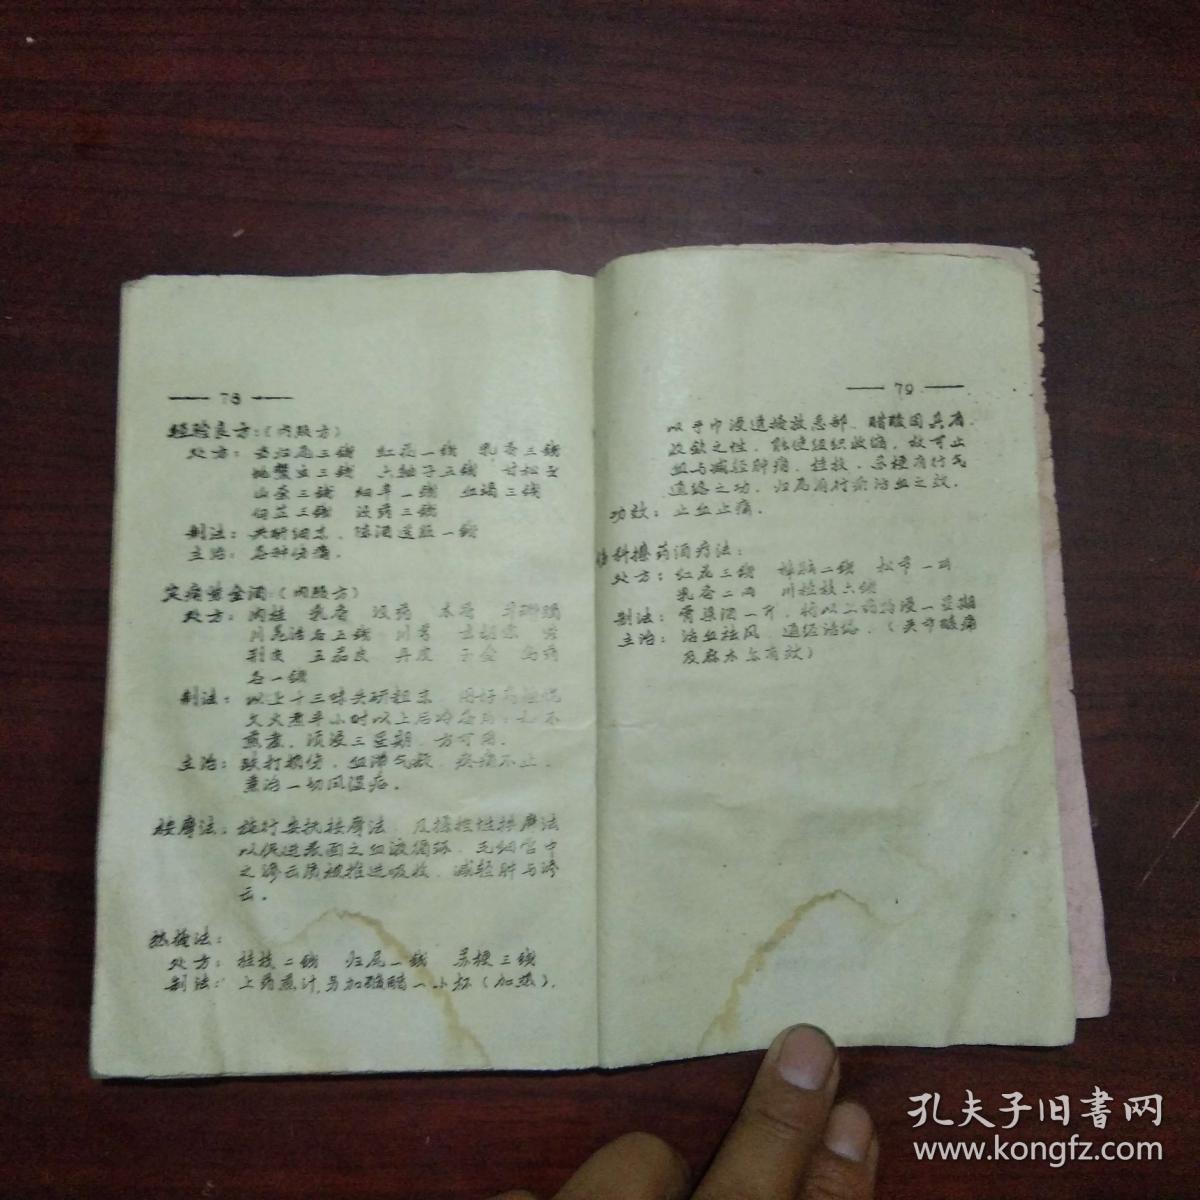 — 78 —
经验良方:(内服方)
处方: 全归尾三钱 红花一钱 乳香三钱
地鳖虫三钱 六轴子三钱 甘松
山奈三钱 细辛一钱 血竭三钱
白芷三钱 没药三钱
制法: 共研细末, 陈酒送服一钱
主治: 各种伤痛.
黄金酒:(内服方)
处方: 肉桂 乳香 没药 木香 羊踯躅
川羌活各五钱 川芎 玄胡索
荆皮 五茄皮 丹皮 子金 乌药
各一钱
制法: 以上十三味共研粗末, 用好高粱
文火煮半小时以上后冷各用: 不
煎煮, 须浸三星期, 方可用.
主治: 跌打损伤, 血滞气, 疼痛不止,
兼治一切风湿.
按摩法: 施行安抚按摩法, 及揉捏性按摩法
以促进表面之血液循环, 毛细管中
之渗出质被推进吸收, 减轻肿与渗
出.
热掩法:
处方: 桂枝二钱 归尾一钱 苏梗三钱
制法: 上药煎汁,另加酸醋一小杯(加热),
— 79 —
以手巾浸透掩放患部, 醋酸因具有
收敛之性, 能使组织收缩, 故可止
血与减轻肿痛, 桂枝, 苏梗有行气
通络之功, 归尾有行瘀活血之效.
功效: 止血止痛.
伤科擦药酒疗法:
处方: 红花三钱 樟脑二钱 松节一两
乳香二两 川桂枝六钱
制法: 膏粱酒一斤, 将以上药物浸一星期
主治: 活血祛风, 通经活络, (关节酸痛
及麻木亦有效)
孔夫子旧書网
www.kongfz.com